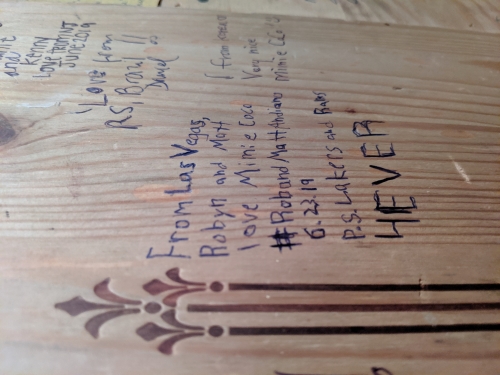 and
Kenny
Love from NJ
June 2019
Love from
RS, Brazil !!
Daniel
From Las Vegas,
Robyn and Matt
love Mimie Coco
#RobandMattAndiano
6.23.19
P.S. Lakers and Rams
4EVER
from
Very nice
Mimie CoCo